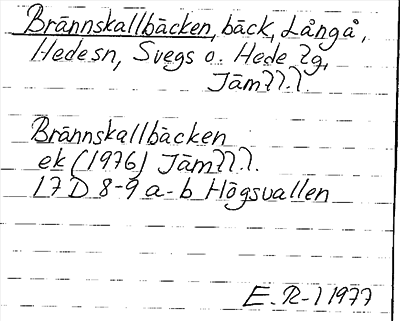 Brännskallbäcken, bäck, Långå,
Hede sn, Svegs o. Hede tg,
Jäm
Brännskallbäcken
ek (1976) Jäm
17 D 8-9 a-b Högsvallen
E. R-l 1977